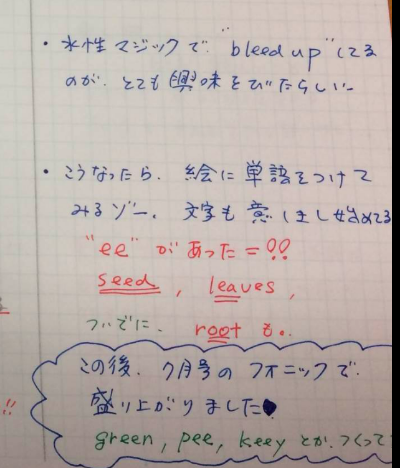 ・水性マジックで "bleed up" してる
のが、とても興味をひいたらしい
・こうなったら、絵に単語をつけて
みるゾー。文字も意しきし始めてる
"ee" があった=!!
seed, leaves,
ついでに、root も。
この後、7月号のフォニックで
盛り上がりました
green, pee, keey とか、つくって
!!